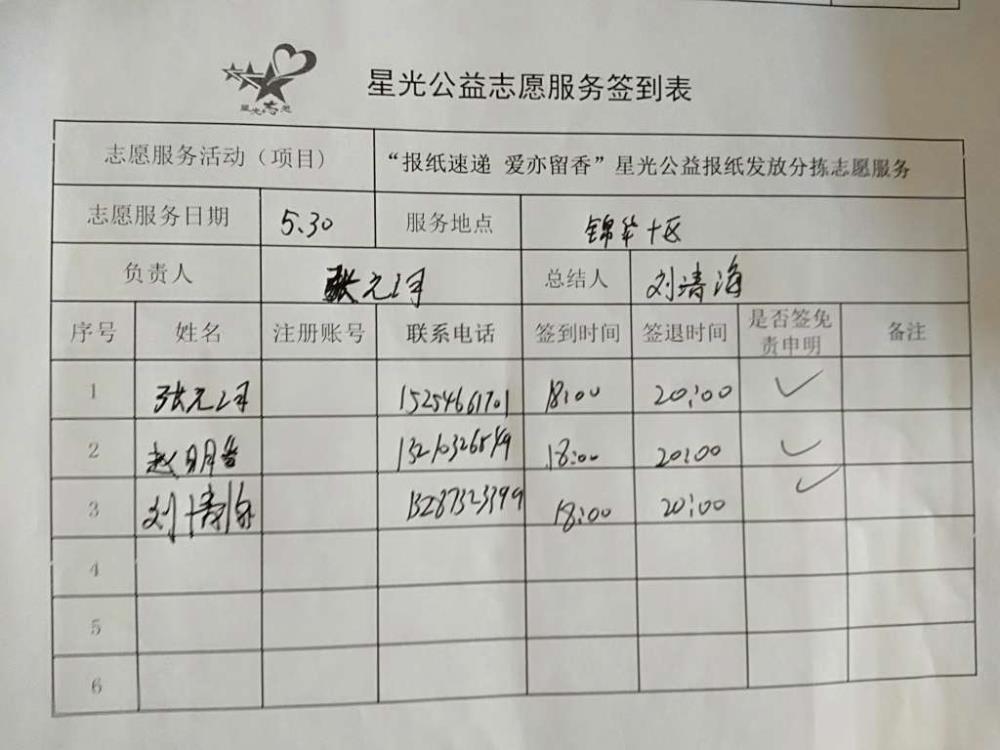 星光志愿
星光公益志愿服务签到表
志愿服务活动（项目） “报纸速递 爱亦留香”星光公益报纸发放分拣志愿服务
志愿服务日期 5.30 服务地点 锦华十区
负责人 张元河 总结人 刘清海
序号 姓名 注册账号 联系电话 签到时间 签退时间 是否签免责申明 备注
1 张元河 15254661701 18:00 20:00 ✓
2 赵明 18:00 20:00 ✓
3 刘清海 13287323399 18:00 20:00 ✓
4
5
6